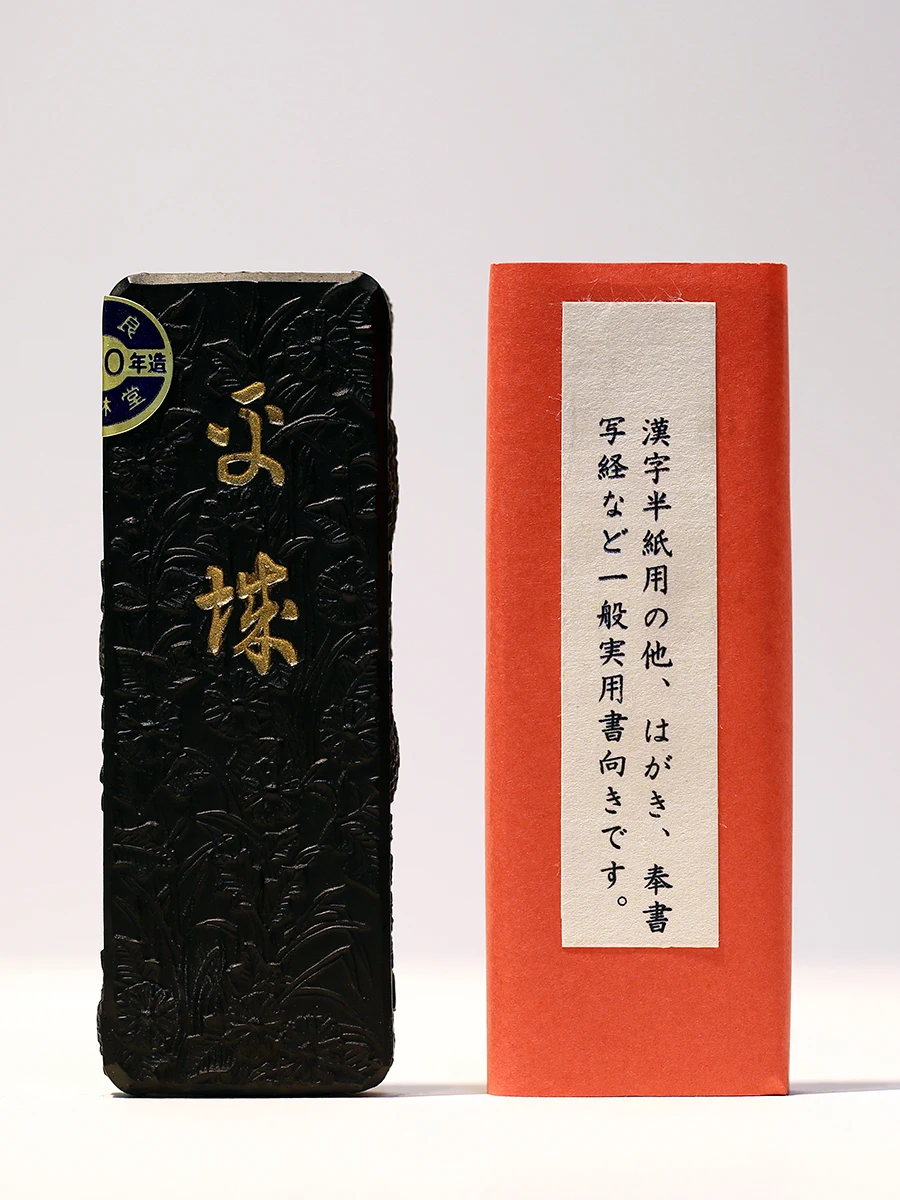 良
0年造
堂
平城
漢字半紙用の他、はがき、奉書
写経など一般実用書向きです。